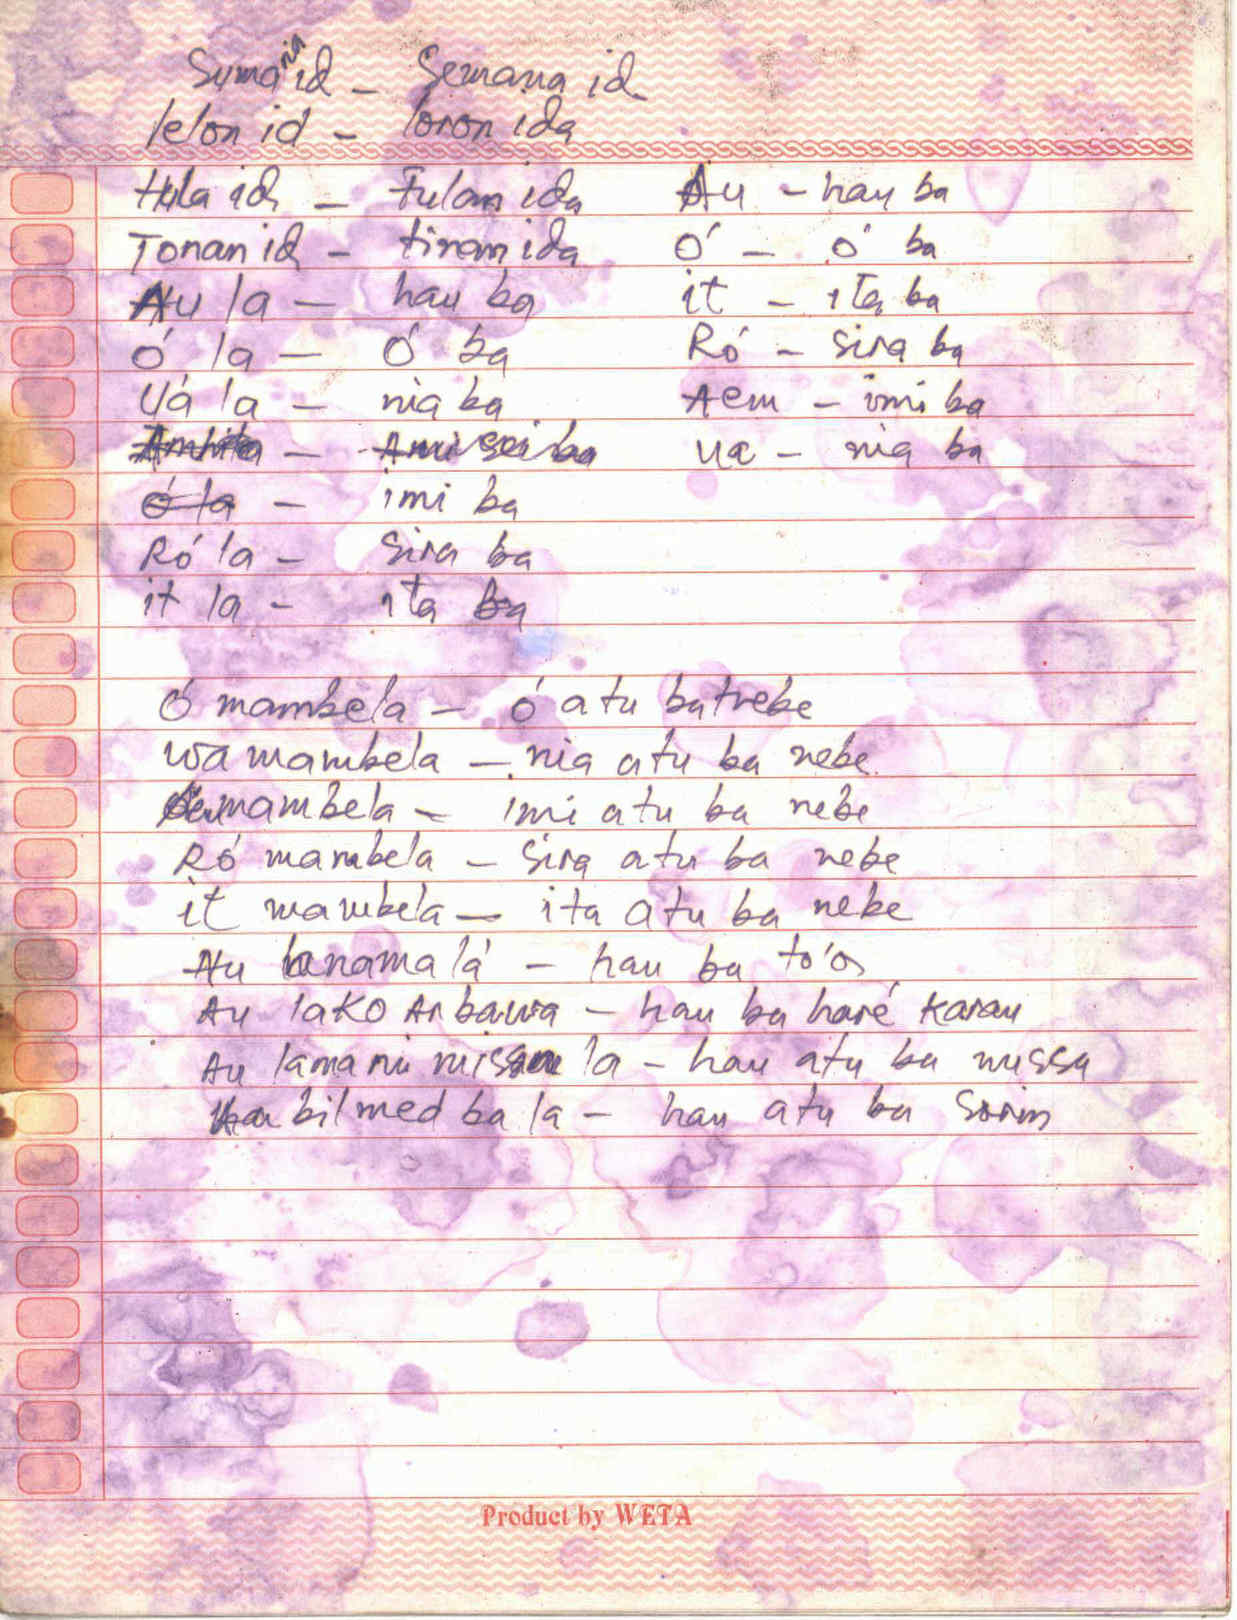 Sumania id - Semana id
lelon id - loron ida
Hula id - Fulan ida
Tonan id - tinan ida
Au la - hau ba
Ó la - Ó ba
Uá la - nia ba
- Ami sei ba
ó la - imi ba
Ró la - Sira ba
it la - ita ba
Au - hau ba
Ó - ó ba
it - ita ba
Ró - Sira ba
Aem - imi ba
Ua - nia ba
Ó mambela - ó atu ba nebe
wa mambela - nia atu ba nebe
mambela - imi atu ba nebe
Ró mambela - Sira atu ba nebe
it mambela - ita atu ba nebe
Au lanama lá - hau ba to'os
Au lako Arbawa - hau ba haré Karau
Au lamani missa la - hau atu ba missa
bil med ba la - hau atu ba Sorin
Product by WETA